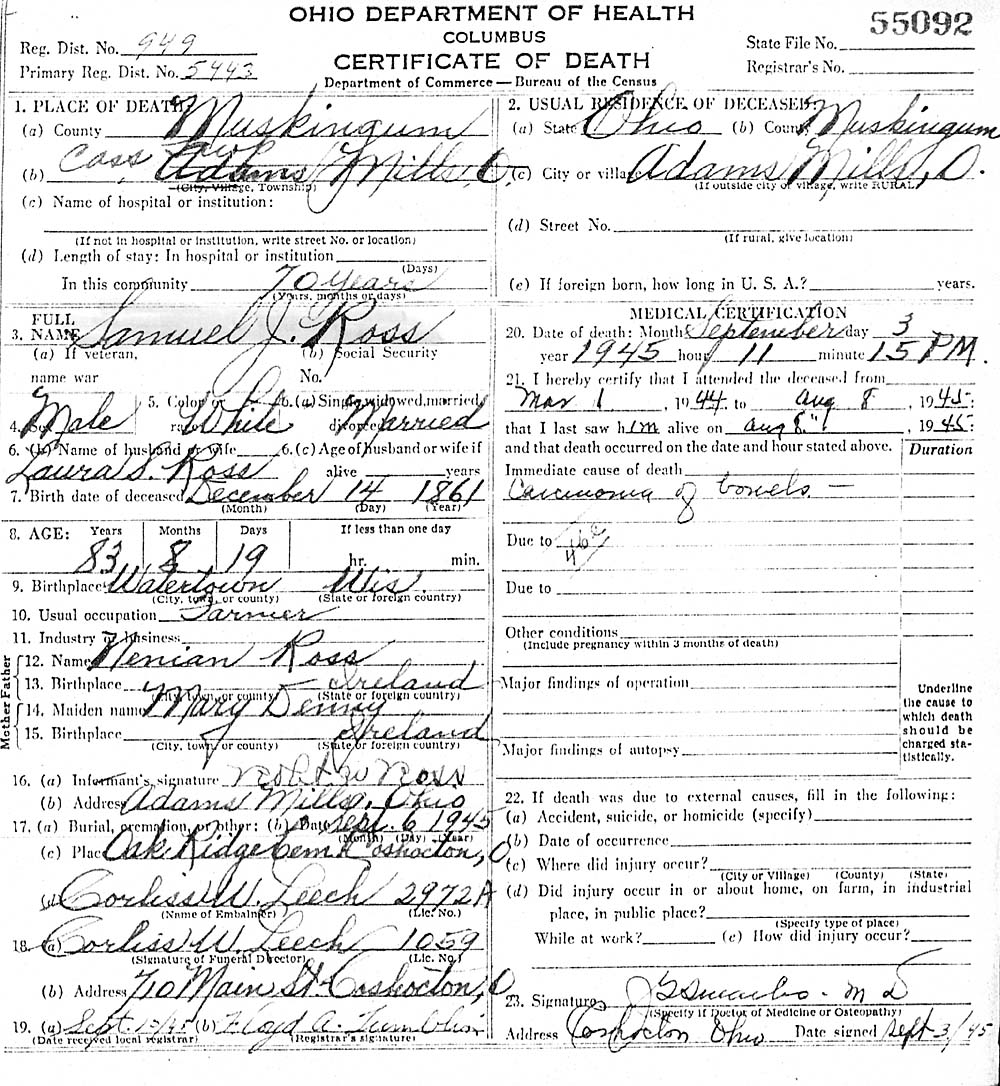 OHIO DEPARTMENT OF HEALTH
COLUMBUS
CERTIFICATE OF DEATH
Department of Commerce — Bureau of the Census
Reg. Dist. No. 949
Primary Reg. Dist. No. 5443
55092
State File No.
Registrar's No.
1. PLACE OF DEATH
(a) County Muskingum
(b) Cass Twp Adams Mills, O.
(City, Village, Township)
(c) Name of hospital or institution:
(If not in hospital or institution, write street No. or location)
(d) Length of stay: In hospital or institution
(Days)
In this community 70 years
(Years, months or days)
2. USUAL RESIDENCE OF DECEASED:
(a) State Ohio (b) County Muskingum
(c) City or village Adams Mills, O.
(If outside city or village, write RURAL)
(d) Street No.
(If rural, give location)
(e) If foreign born, how long in U. S. A.? years.
3. FULL NAME Samuel J. Ross
(a) If veteran, name war
(b) Social Security No.
4. Sex Male 5. Color or race White 6. (a) Single, widowed, married, divorced Married
6. (b) Name of husband or wife Laura S. Ross 6. (c) Age of husband or wife if alive years
7. Birth date of deceased December 14 1861
(Month) (Day) (Year)
8. AGE: Years Months Days If less than one day
83 8 19 hr. min.
9. Birthplace Watertown Wis.
(City, town, or county) (State or foreign country)
10. Usual occupation Farmer
11. Industry or business
Father
12. Name Nenian Ross
13. Birthplace Ireland
(City, town, or county) (State or foreign country)
Mother
14. Maiden name Mary Denny
15. Birthplace Ireland
(City, town, or county) (State or foreign country)
16. (a) Informant's signature Robt W Ross
(b) Address Adams Mills, Ohio
17. (a) Burial, cremation, or other: (b) Date Sept. 6 1945
(Month) (Day) (Year)
(c) Place Oak Ridge Cem. Coshocton, O
(d) Corliss W. Leech 2972A
(Name of Embalmer) (Lic. No.)
18. (a) Corliss W. Leech 1059
(Signature of Funeral Director) (Lic. No.)
(b) Address 710 Main St. Coshocton, O
19. (a) Sept (b) Floyd A.
(Date received local registrar) (Registrar's signature)
MEDICAL CERTIFICATION
20. Date of death: Month September day 3
year 1945 hour 11 minute 15 PM.
21. I hereby certify that I attended the deceased from
Mar 1, 1944, to Aug 8, 1945:
that I last saw him alive on Aug 8, 1945:
and that death occurred on the date and hour stated above.
Duration
Immediate cause of death
Carcinoma of bowels —
Due to 46e
Due to
Other conditions
(Include pregnancy within 3 months of death)
Major findings of operation
Major findings of autopsy
Underline the cause to which death should be charged statistically.
22. If death was due to external causes, fill in the following:
(a) Accident, suicide, or homicide (specify)
(b) Date of occurrence
(c) Where did injury occur?
(City or Village) (County) (State)
(d) Did injury occur in or about home, on farm, in industrial
place, in public place?
(Specify type of place)
While at work? (e) How did injury occur?
23. Signature M D
(Specify if Doctor of Medicine or Osteopathy)
Address Coshocton Ohio Date signed Sept 3/45